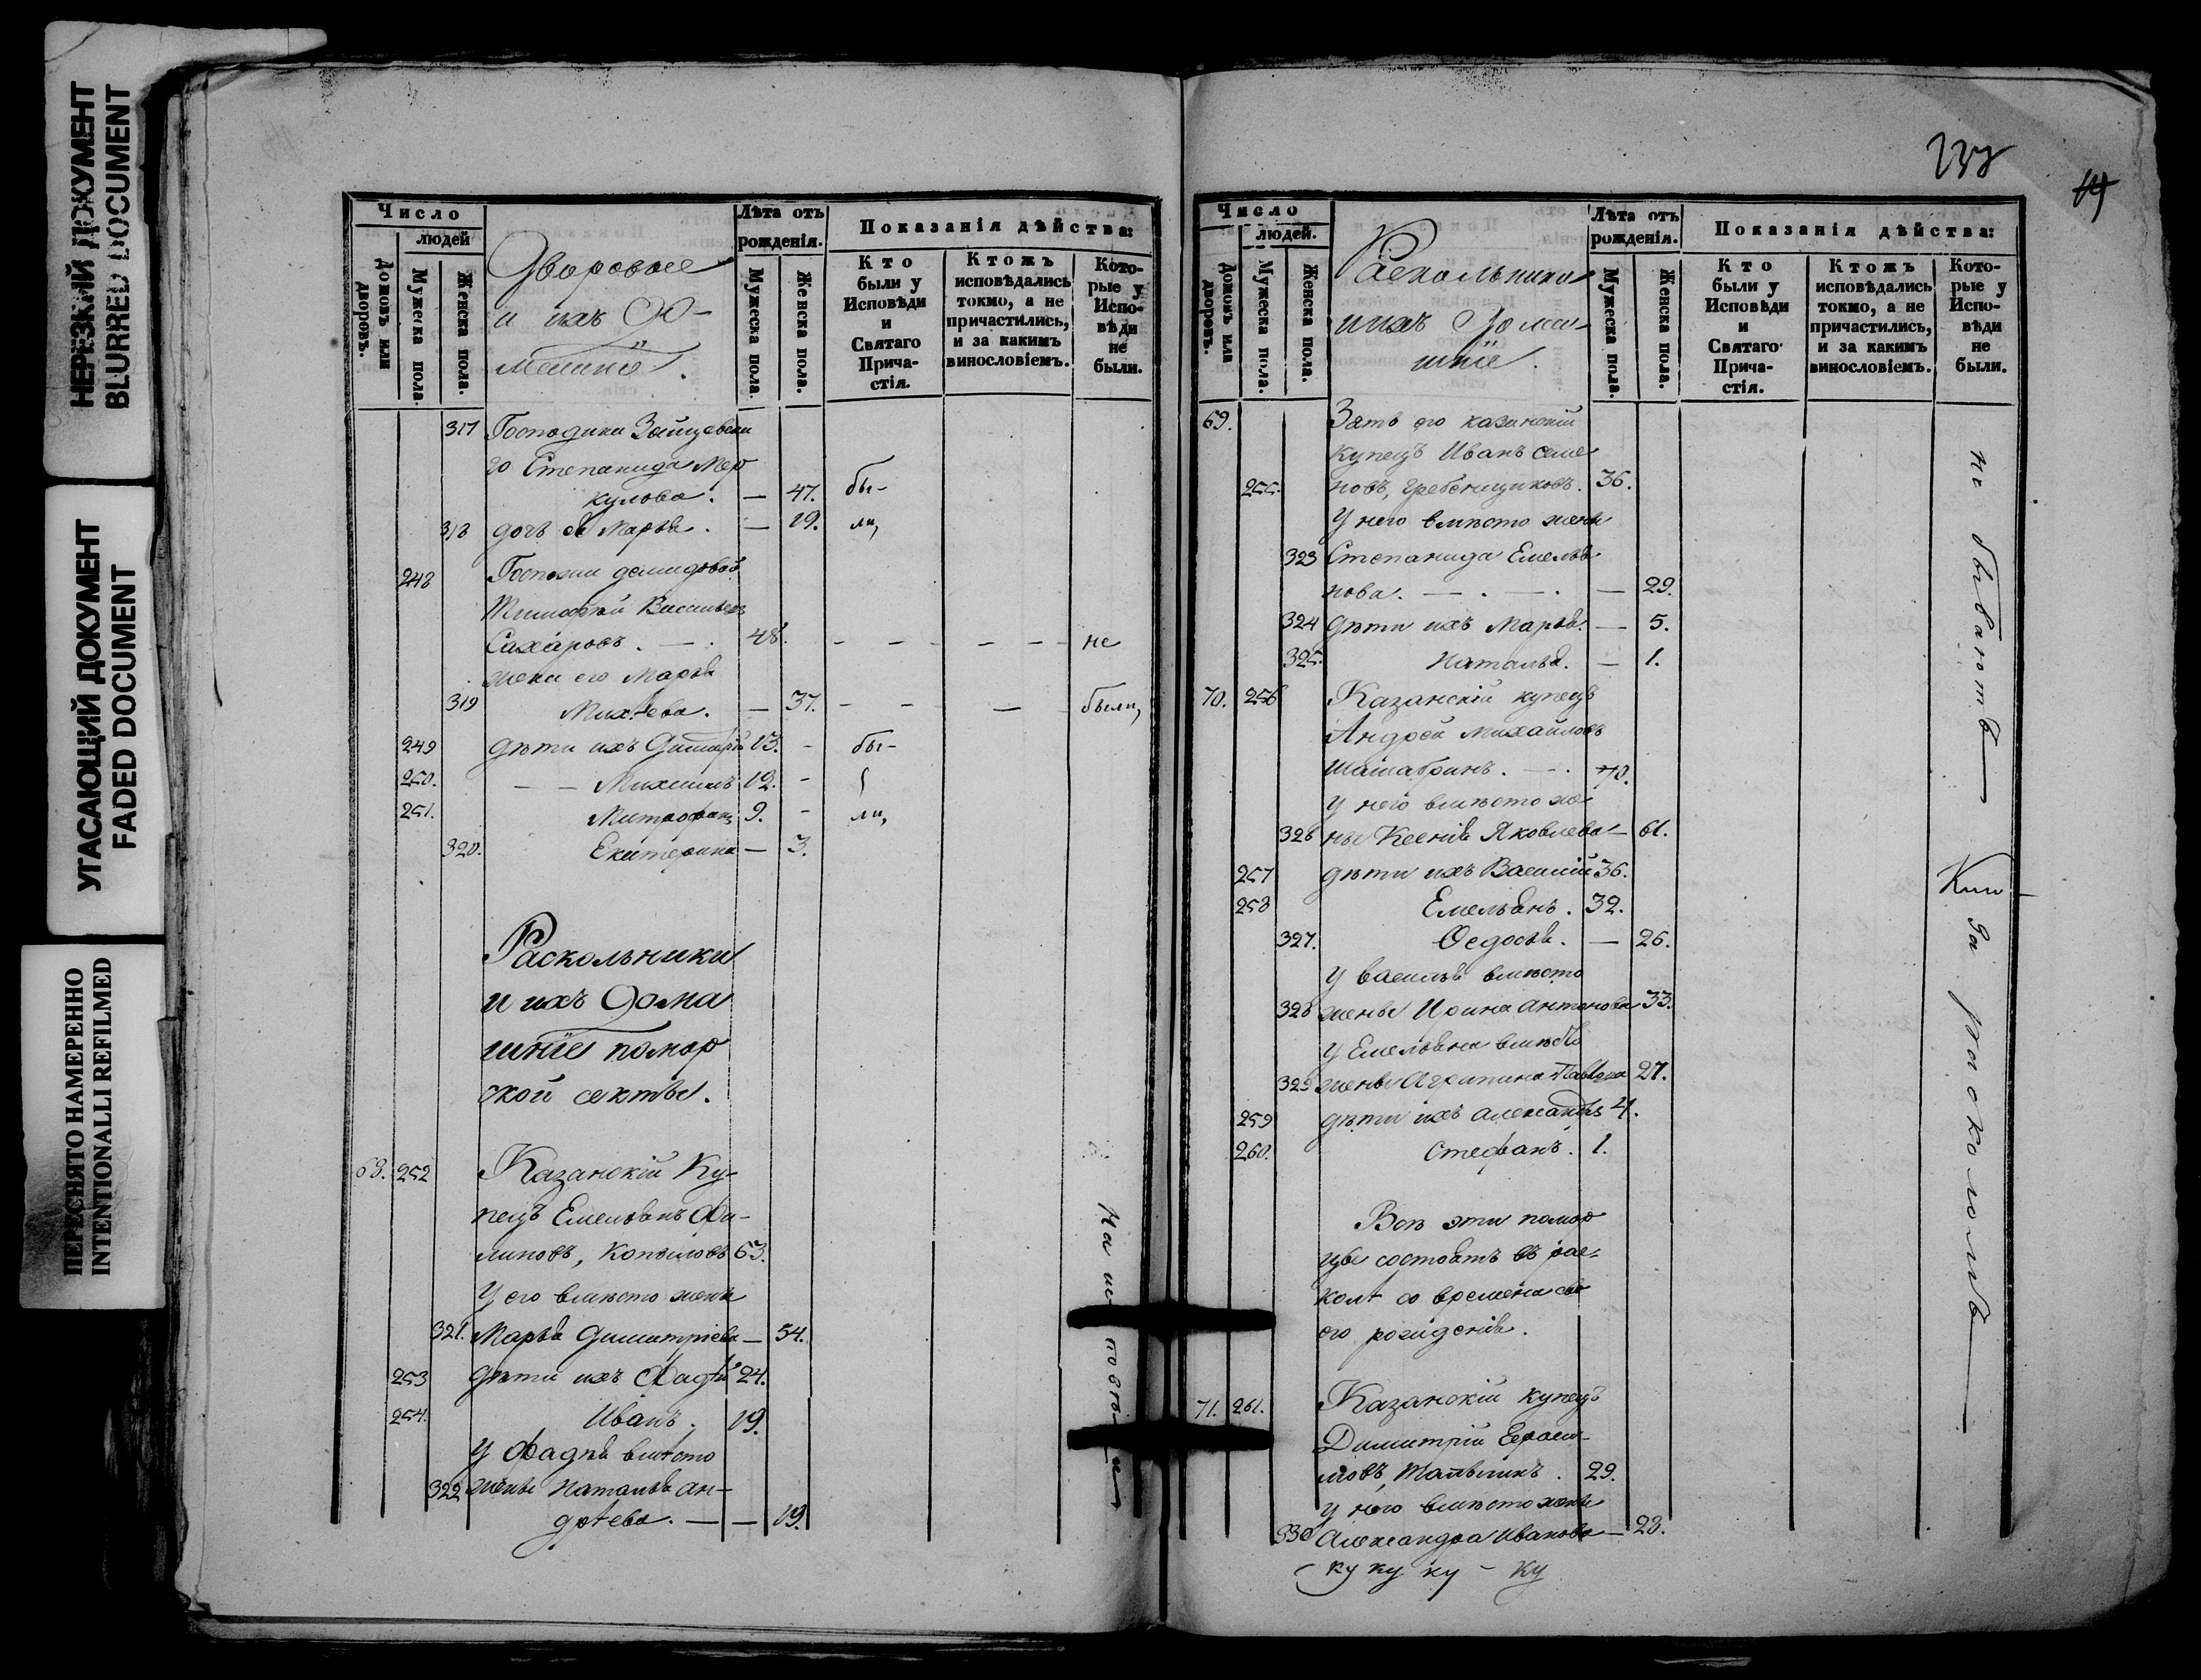 НЕРЕЗКИЙ ДОКУМЕНТ
BLURRED DOCUMENT
УГАСАЮЩИЙ ДОКУМЕНТ
FADED DOCUMENT
ПЕРЕСНЯТО НАМЕРЕННО
INTENTIONALLI REFILMED
Число
людей
Домовъ или дворовъ.
Мужеска пола.
Женска пола.
Дворовые
и ихъ до-
машніе.
Лѣта отъ рожденія.
Мужеска пола.
Женска пола.
Показанія дѣйства:
Кто были у Исповѣди и Святаго Прича-стія.
Ктожъ исповѣдались токмо, а не причастились, и за какимъ винословіемъ.
Кото-рые у Испо-вѣди не были.
317 Господина
го Степанида Мер
кулова. — 47. бы-
318 дочь ея Марья. — 19. ли,
248 Госпожи демидовой
Тимофей Васильевъ
Сахаровъ. — 48. - - - - - - не
жена его Марья
319 Михѣева. — 37. - - — были,
249 дѣти ихъ Димитрій 13. - бы-
250. — — Михаилъ 12. -
251. Митрофанъ 9. - ли,
320. Екатерина — 3.
Раскольники
и ихъ дома
шніе помор
ской секты.
68. 252 Казанскій Ку-
пецъ Емельянъ Фи-
липовъ, Копыловъ 63.
У его вмѣсто жены
321. Марья Димитріева — 54.
253 дѣти ихъ Фадѣй 24.
254. Иванъ. 19.
У Фадѣя вмѣсто
322 жены Наталья ан-
дрѣева. — — 19.
На исповѣ-
237
Число
людей.
Домовъ или дворовъ.
Мужеска пола.
Женска пола.
Раскольники
и ихъ дома-
шніе.
Лѣта отъ рожденія.
Мужеска пола.
Женска пола.
Показанія дѣйства:
Кто были у Исповѣди и Святаго Прича-стія.
Ктожъ исповѣдались токмо, а не причастились, и за какимъ винословіемъ.
Кото-рые у Испо-вѣди не были.
69. Зять его казанскій
купецъ Иванъ Семе
255. новъ, Гребенщиковъ. 36.
У него вмѣсто жены
323 Степанида Емелья
нова. — . — . — 29.
324 дѣти ихъ Марья. — 5.
325. Наталья. — 1.
70. 256 Казанскій купецъ
Андрей Михайловъ
70.
у него вмѣсто же
326 ны Ксенія Яковлева — 61.
257 дѣти ихъ Василій 36.
258 Емельянъ. 32.
327. Федосья. — 26.
У василья вмѣсто
328 жены Ирина антонова 33.
У Емельяна вмѣсто
329 жены Агрипина Павлова 27.
259 дѣти ихъ александръ 4.
260. Стефанъ. 1.
Всѣ эти помор
цы состоятъ въ рас-
колѣ со времени сво
его рожденія.
71. 261. Казанскій купецъ
Димитрій Ераси-
мовъ, 29.
У него вмѣсто жены
330 Александра Иванова — 28.
ку ку ку - ку
не бываютъ
за расколомъ